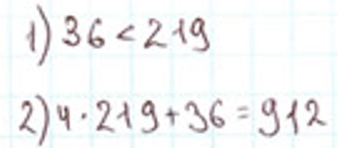 1) 36 < 219
2) 4 · 219 + 36 = 912